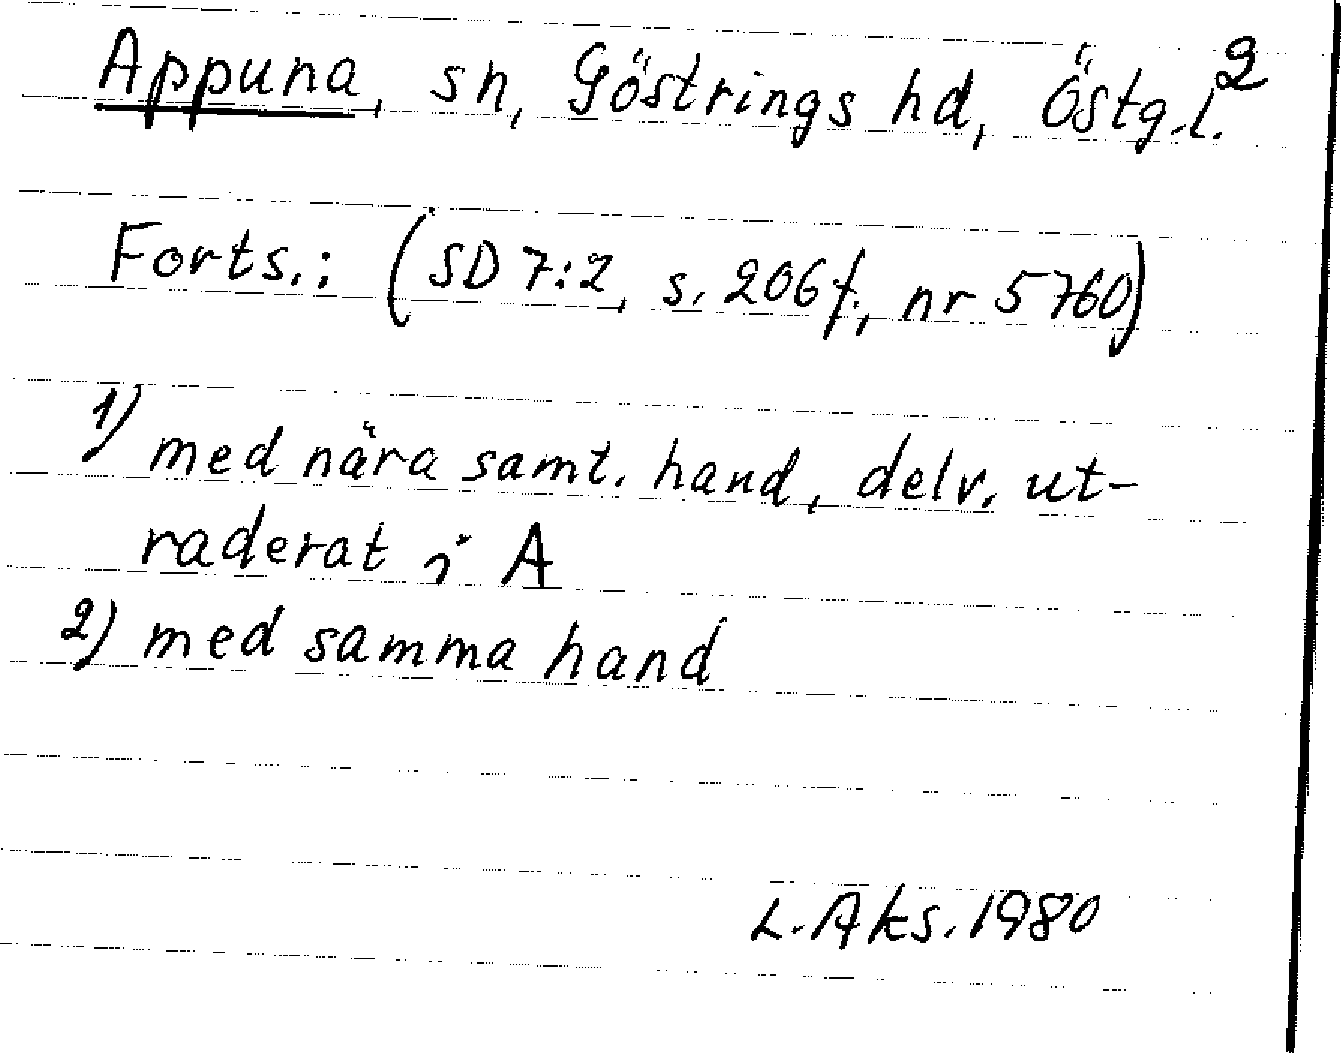 Appuna, sn, Göstrings hd, Östg.l. 2
Forts.: (SD 7:2, s. 206 f., nr 5760)
1) med nära samt. hand, delv. ut-
raderat i A
2) med samma hand
L. Aks. 1980